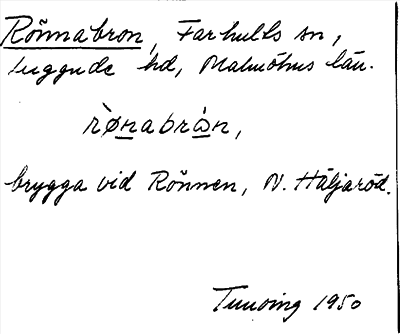 Rönnabron, Farhults sn,
Luggude hd, Malmöhus län.
rø̀nabrὼn,
brygga vid Rönnen, N. Häljaröd.
Tuneing 1950